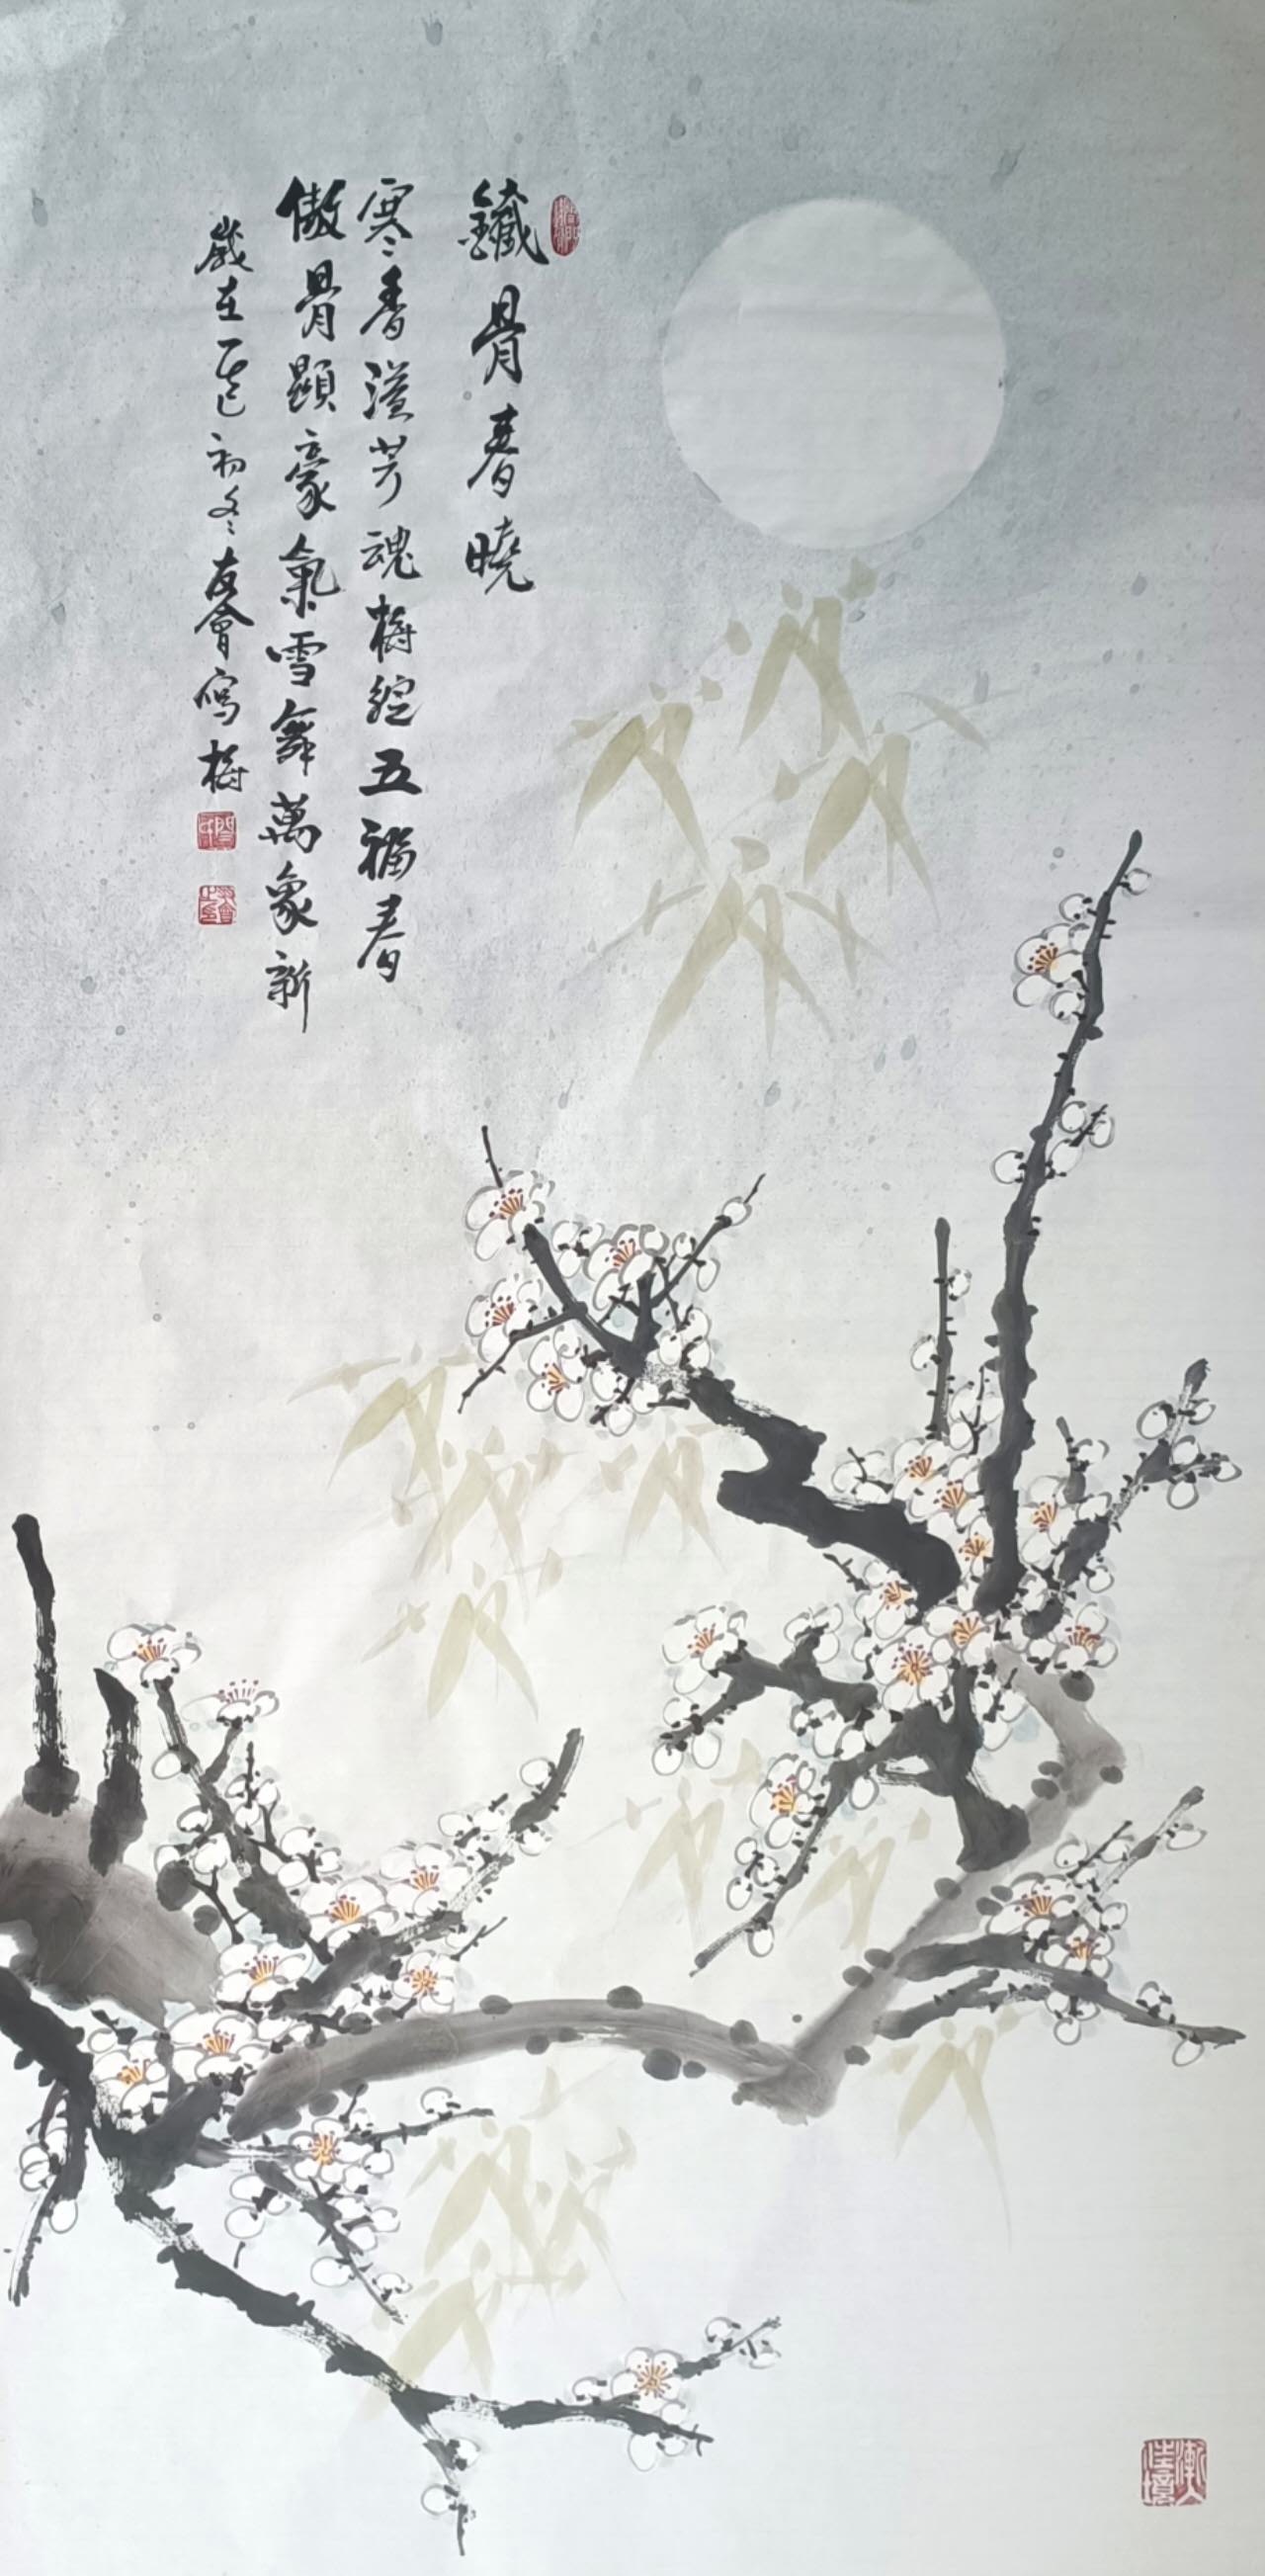 鐵骨春曉
寒香溢芳魂梅綻五福春
傲骨顯豪氣雪舞萬象新
歲在乙巳初冬友會寫梅
漸入佳境